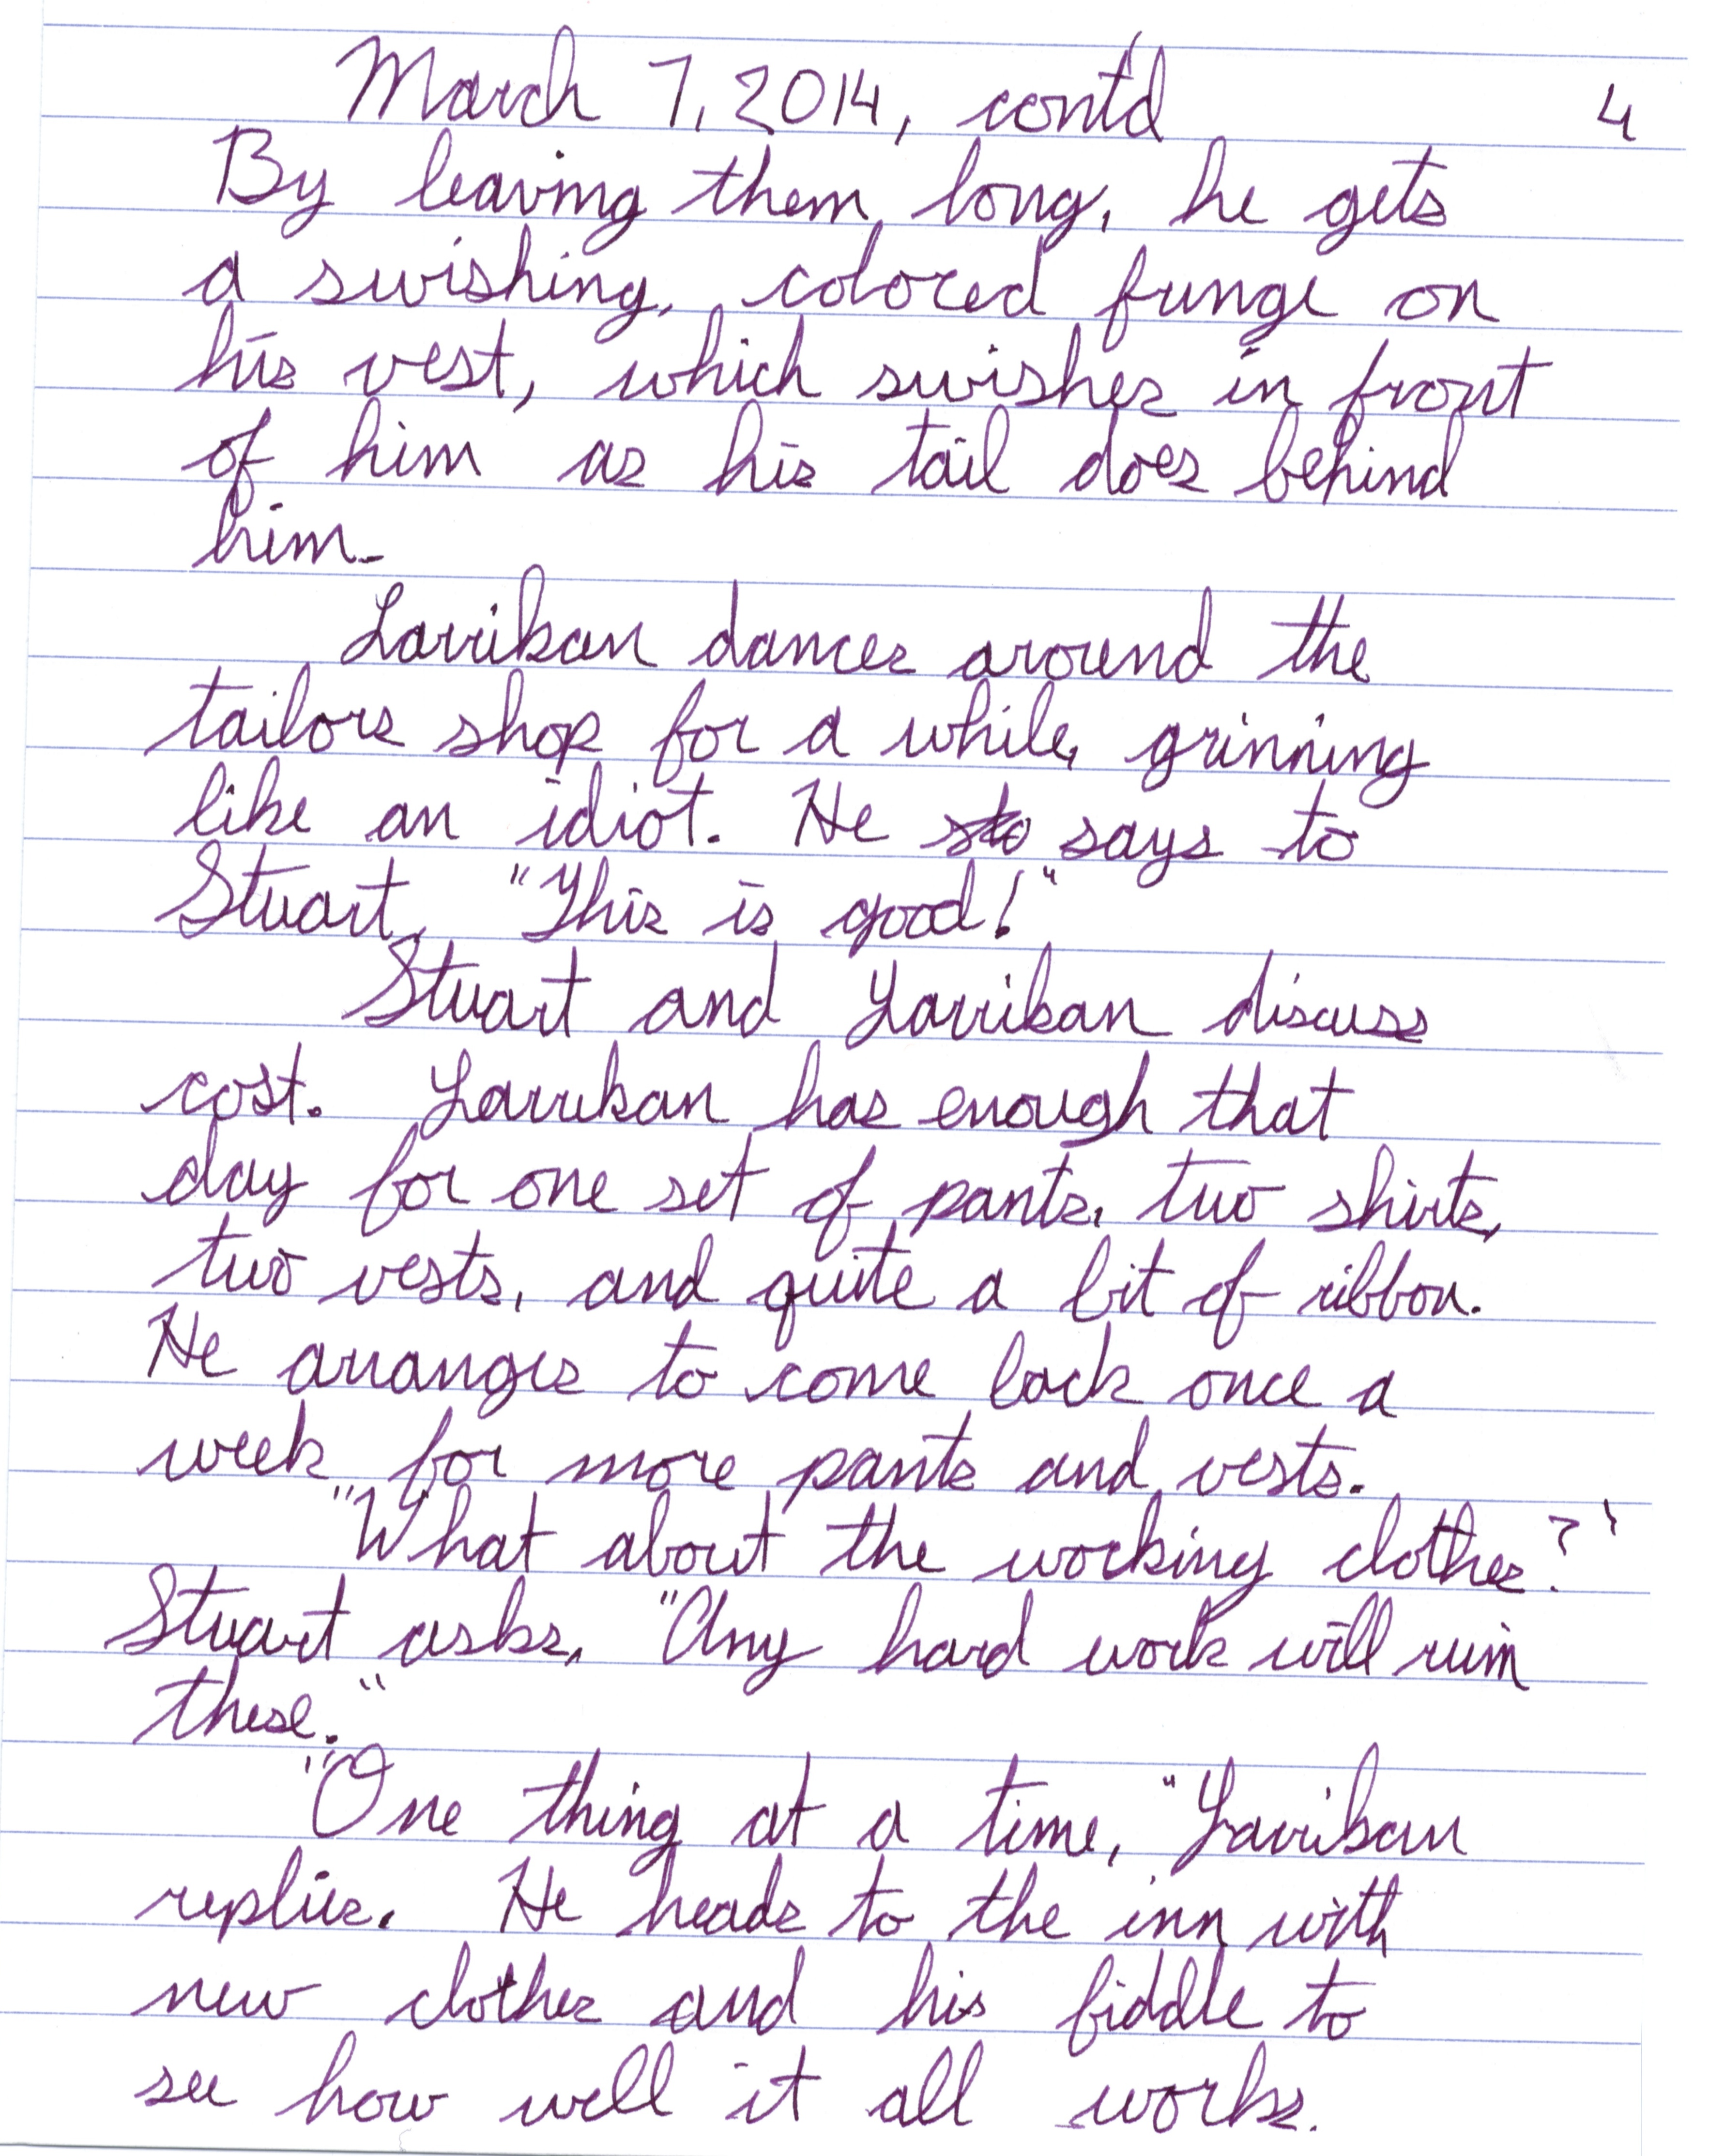 March 7, 2014, cont'd 4
By leaving them long, he gets
a swishing, colored fringe on
his vest, which swishes in front
of him as his tail does behind
him.
Larrikan dances around the
tailors shop for a while, grinning
like an idiot. He sto says to
Stuart, "This is good!"
Stuart and Larrikan discuss
cost. Larrikan has enough that
day for one set of pants, two shirts,
two vests, and quite a bit of ribbon.
He arranges to come back once a
week for more pants and vests.
"What about the working clothes?"
Stuart asks. "Any hard work will ruin
these."
"One thing at a time," Larrikan
replies. He heads to the inn with
new clothes and his fiddle to
see how well it all works.